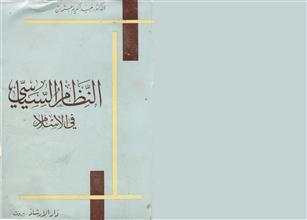 الدكتور عبد الكريم عثمان
النظام السياسي
في الاسلام
دار الارشاد - بيروت